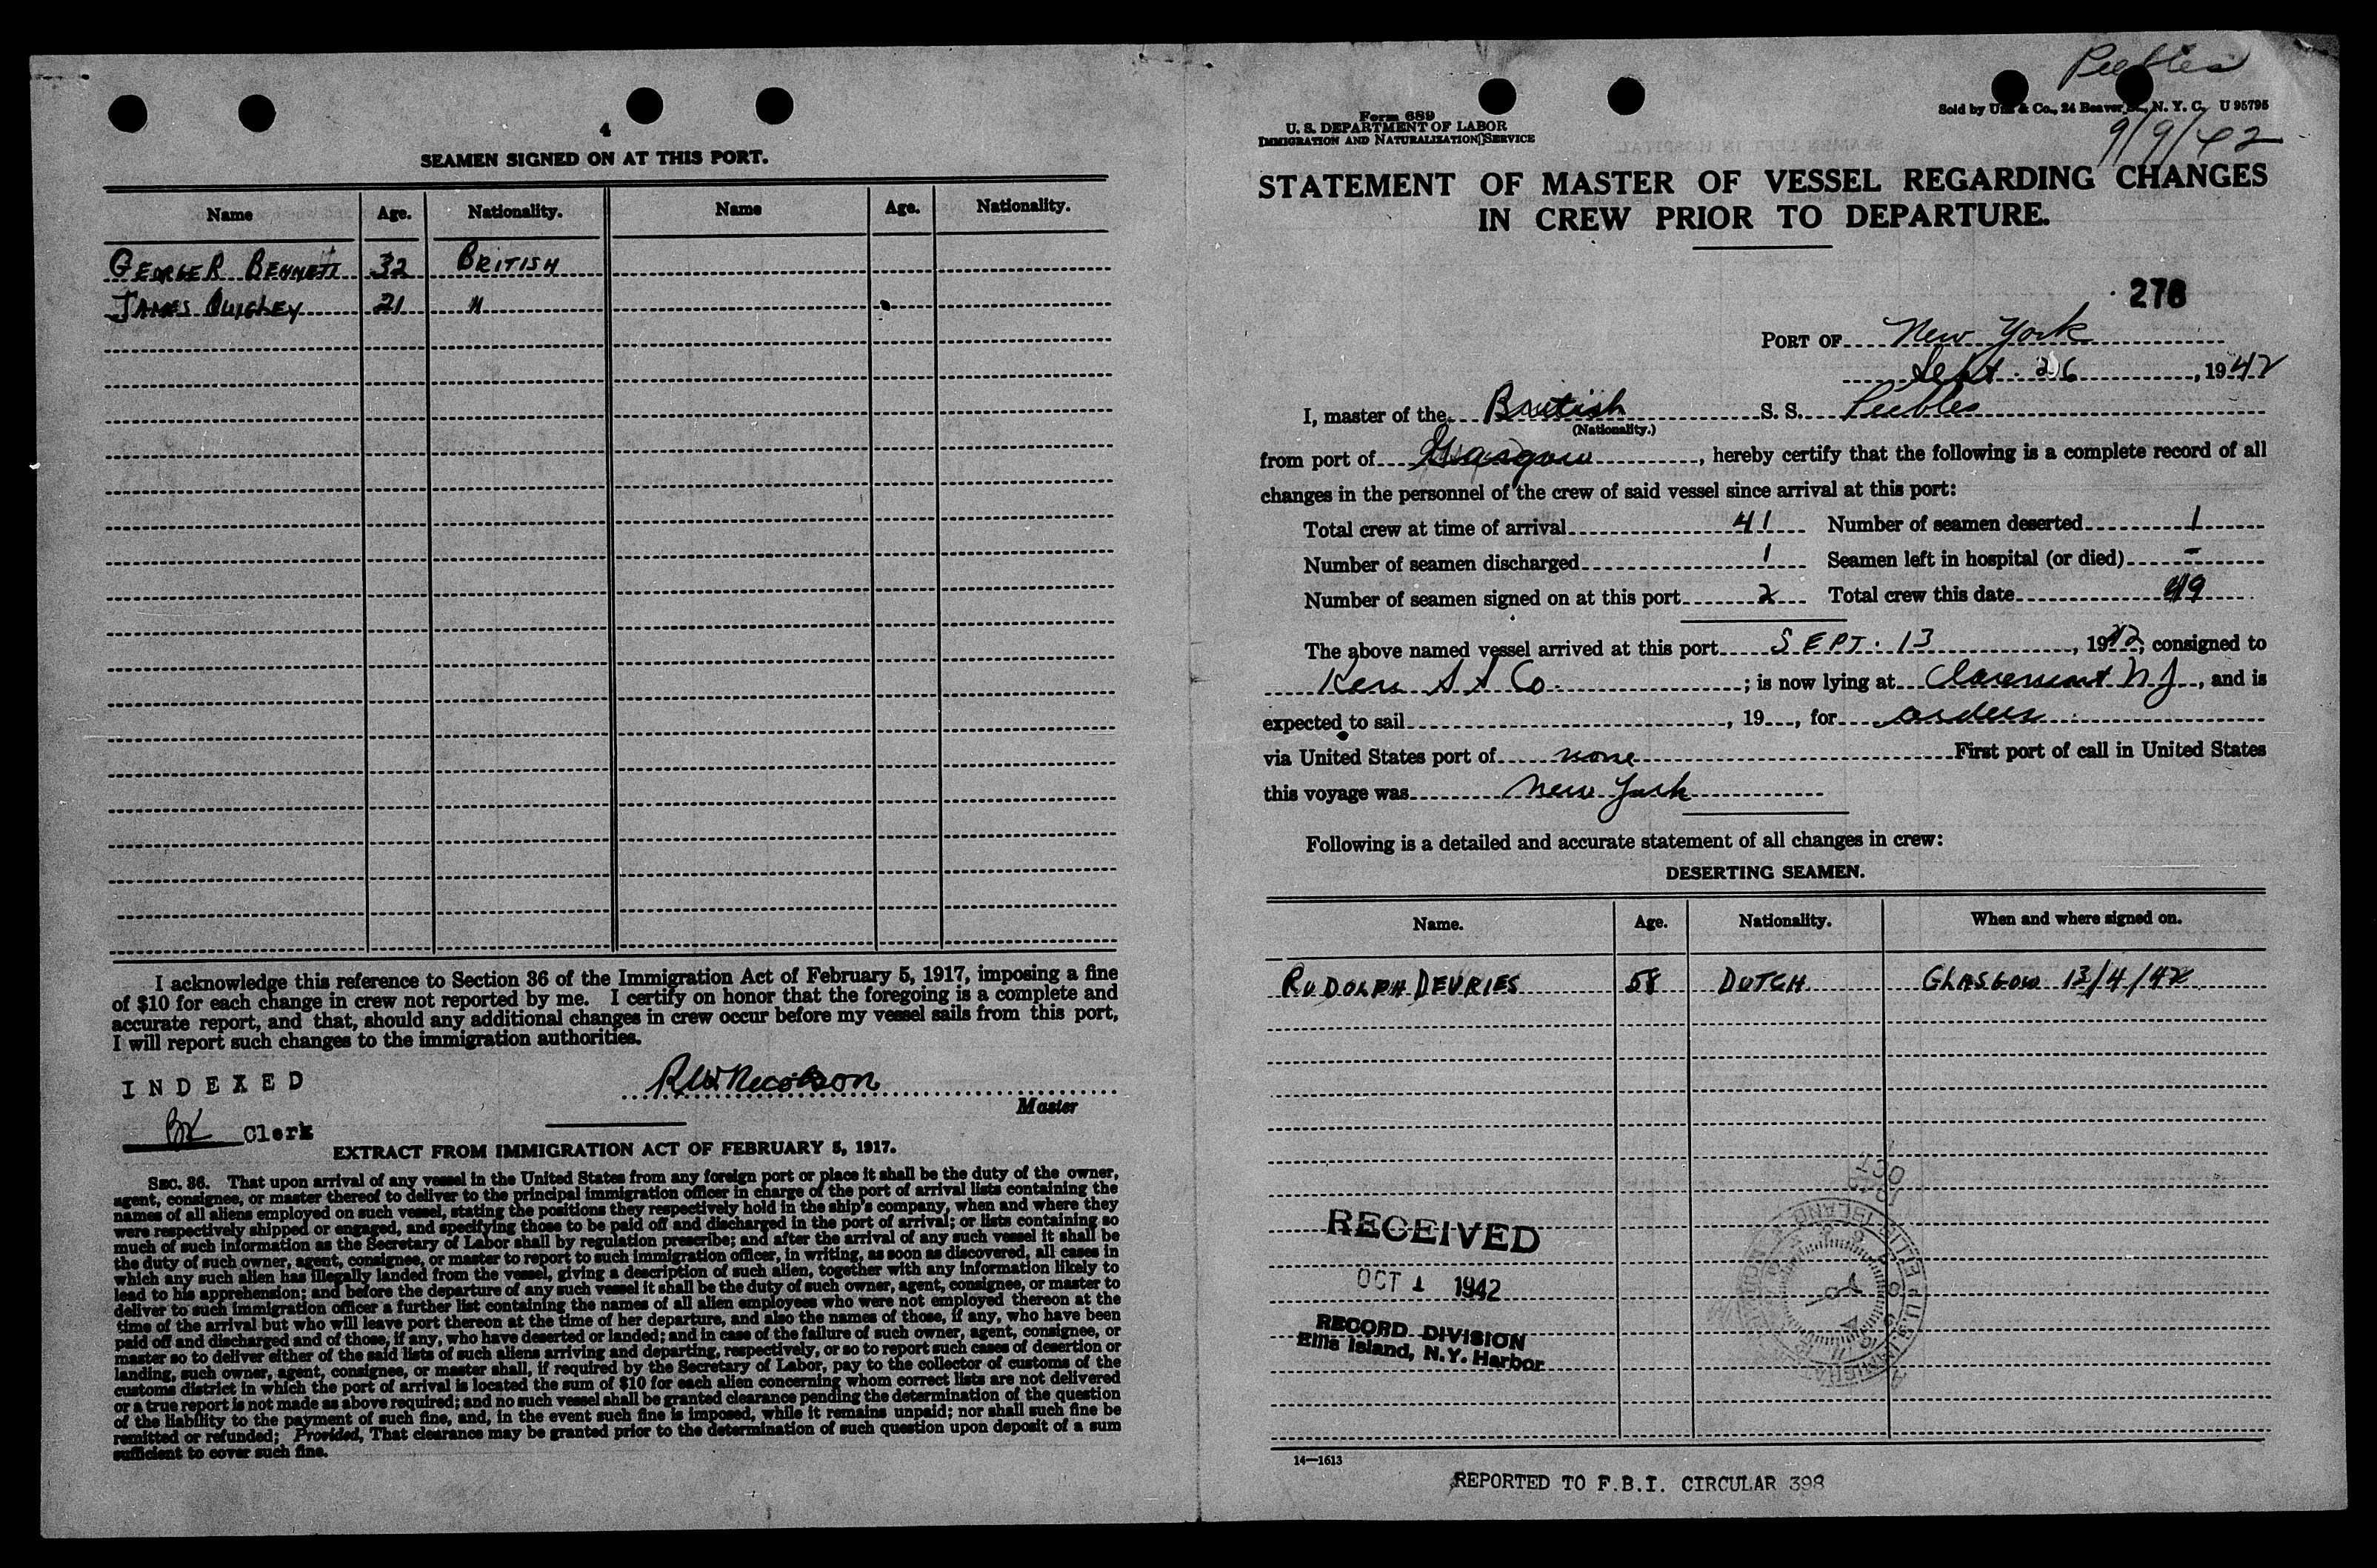 4
SEAMEN SIGNED ON AT THIS PORT.
Name Age. Nationality. Name Age. Nationality.
GEORGE R BENNETT 32 BRITISH
JAMES QUIGLEY 21 "
I acknowledge this reference to Section 36 of the Immigration Act of February 5, 1917, imposing a fine
of $10 for each change in crew not reported by me. I certify on honor that the foregoing is a complete and
accurate report, and that, should any additional changes in crew occur before my vessel sails from this port,
I will report such changes to the immigration authorities.
INDEXED
Clerk
Master
EXTRACT FROM IMMIGRATION ACT OF FEBRUARY 5, 1917.
SEC. 36. That upon arrival of any vessel in the United States from any foreign port or place it shall be the duty of the owner,
agent, consignee, or master thereof to deliver to the principal immigration officer in charge of the port of arrival lists containing the
names of all aliens employed on such vessel, stating the positions they respectively hold in the ship's company, when and where they
were respectively shipped or engaged, and specifying those to be paid off and discharged in the port of arrival; or lists containing so
much of such information as the Secretary of Labor shall by regulation prescribe; and after the arrival of any such vessel it shall be
the duty of such owner, agent, consignee, or master to report to such immigration officer, in writing, as soon as discovered, all cases in
which any such alien has illegally landed from the vessel, giving a description of such alien, together with any information likely to
lead to his apprehension; and before the departure of any such vessel it shall be the duty of such owner, agent, consignee, or master to
deliver to such immigration officer a further list containing the names of all alien employees who were not employed thereon at the
time of the arrival but who will leave port thereon at the time of her departure, and also the names of those, if any, who have been
paid off and discharged and of those, if any, who have deserted or landed; and in case of the failure of such owner, agent, consignee, or
master so to deliver either of the said lists of such aliens arriving and departing, respectively, or so to report such cases of desertion or
landing, such owner, agent, consignee, or master shall, if required by the Secretary of Labor, pay to the collector of customs of the
customs district in which the port of arrival is located the sum of $10 for each alien concerning whom correct lists are not delivered
or a true report is not made as above required; and no such vessel shall be granted clearance pending the determination of the question
of the liability to the payment of such fine, and, in the event such fine is imposed, while it remains unpaid; nor shall such fine be
remitted or refunded; Provided, That clearance may be granted prior to the determination of such question upon deposit of a sum
sufficient to cover such fine.
Peebles
Form 689
U. S. DEPARTMENT OF LABOR
IMMIGRATION AND NATURALIZATION SERVICE
Sold by & Co., 24 Beaver N. Y. C. U 95795
9/9/42
STATEMENT OF MASTER OF VESSEL REGARDING CHANGES
IN CREW PRIOR TO DEPARTURE.
276
PORT OF New York
Sept. 26, 1942
I, master of the British S. S. Peebles
(Nationality.)
from port of Glasgow, hereby certify that the following is a complete record of all
changes in the personnel of the crew of said vessel since arrival at this port:
Total crew at time of arrival 41 Number of seamen deserted 1
Number of seamen discharged 1 Seamen left in hospital (or died) -
Number of seamen signed on at this port 2 Total crew this date
The above named vessel arrived at this port SEPT. 13, 1942, consigned to
Kerr S S Co.; is now lying at Claremont N J, and is
expected to sail, 19, for orders
via United States port of none First port of call in United States
this voyage was New York
Following is a detailed and accurate statement of all changes in crew:
DESERTING SEAMEN.
Name. Age. Nationality. When and where signed on.
RUDOLPH DEVRIES 58 DUTCH GLASGOW 13/4/42
RECEIVED
OCT 1 1942
RECORD DIVISION
Ellis Island, N.Y. Harbor
14—1613
REPORTED TO F.B.I. CIRCULAR 398